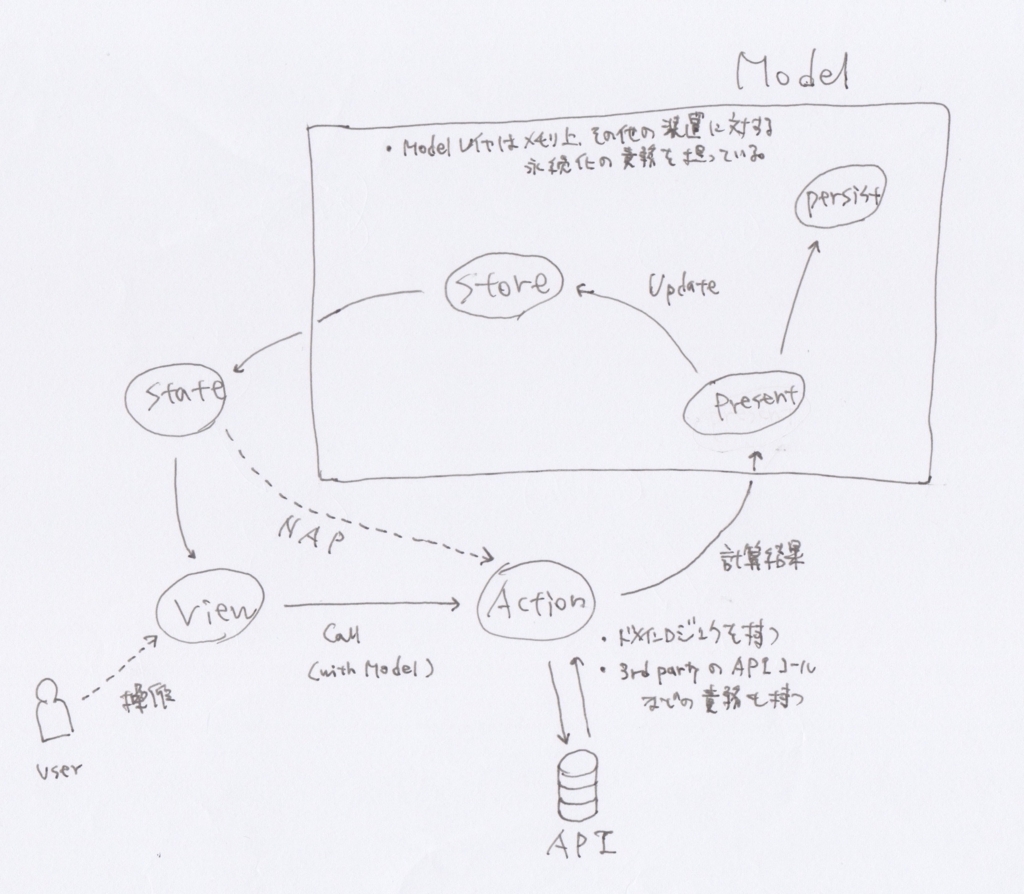 Model
・Modelレイヤはメモリ上、その他の装置に対する
永続化の責務を担っている。
persist
Store
Update
State
Present
NAP
計算結果
View
Action
Call
(with Model)
・ドメインロジックを持つ
・3rd partyのAPIコール
までの責務を持つ
操作
user
API